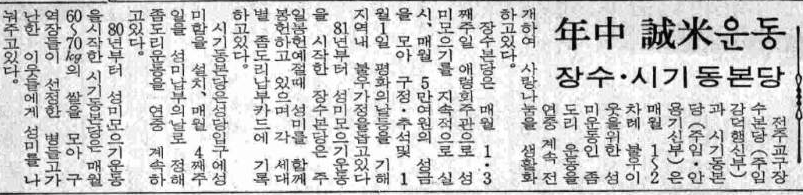 年中 誠米운동
장수·시기동본당
전주교구장
수본당(주임
감덕행신부)
과 시기동본
당(주임·안
용기신부)은
매월 1~2
차례 불우이
웃을위한 성
미운동인 좀
도리 운동을
연중 계속 전
개하여 사랑나눔을 생활화
하고있다.
장수본당은 매월 1·3
째주일 애령회주관으로 성
미모으기를 지속적으로 실
시、매월 5만여원의 성금
을 모아 구정·추석및 1
월1일 평화의날등을 기해
지역내 불우가정을돕고있다
81년부터 성미모으기운동
을 시작한 장수본당은 주
일봉헌예절때 성미를 함께
봉헌하고 있으며 각 세대
별 좀도리납부카드에 기록
하고있다.
시기동본당은성당입구에성
미함을 설치、매월 4째주
일을 성미납부의날로 정해
좀도리운동을 연중 계속하
고있다.
80년부터 성미모으기운동
을시작한 시기동본당은 매월
60~70kg의 쌀을 모아 구
역장들이 선정한 병들고가
난한 이웃들에게 성미를 나
눠주고있다.